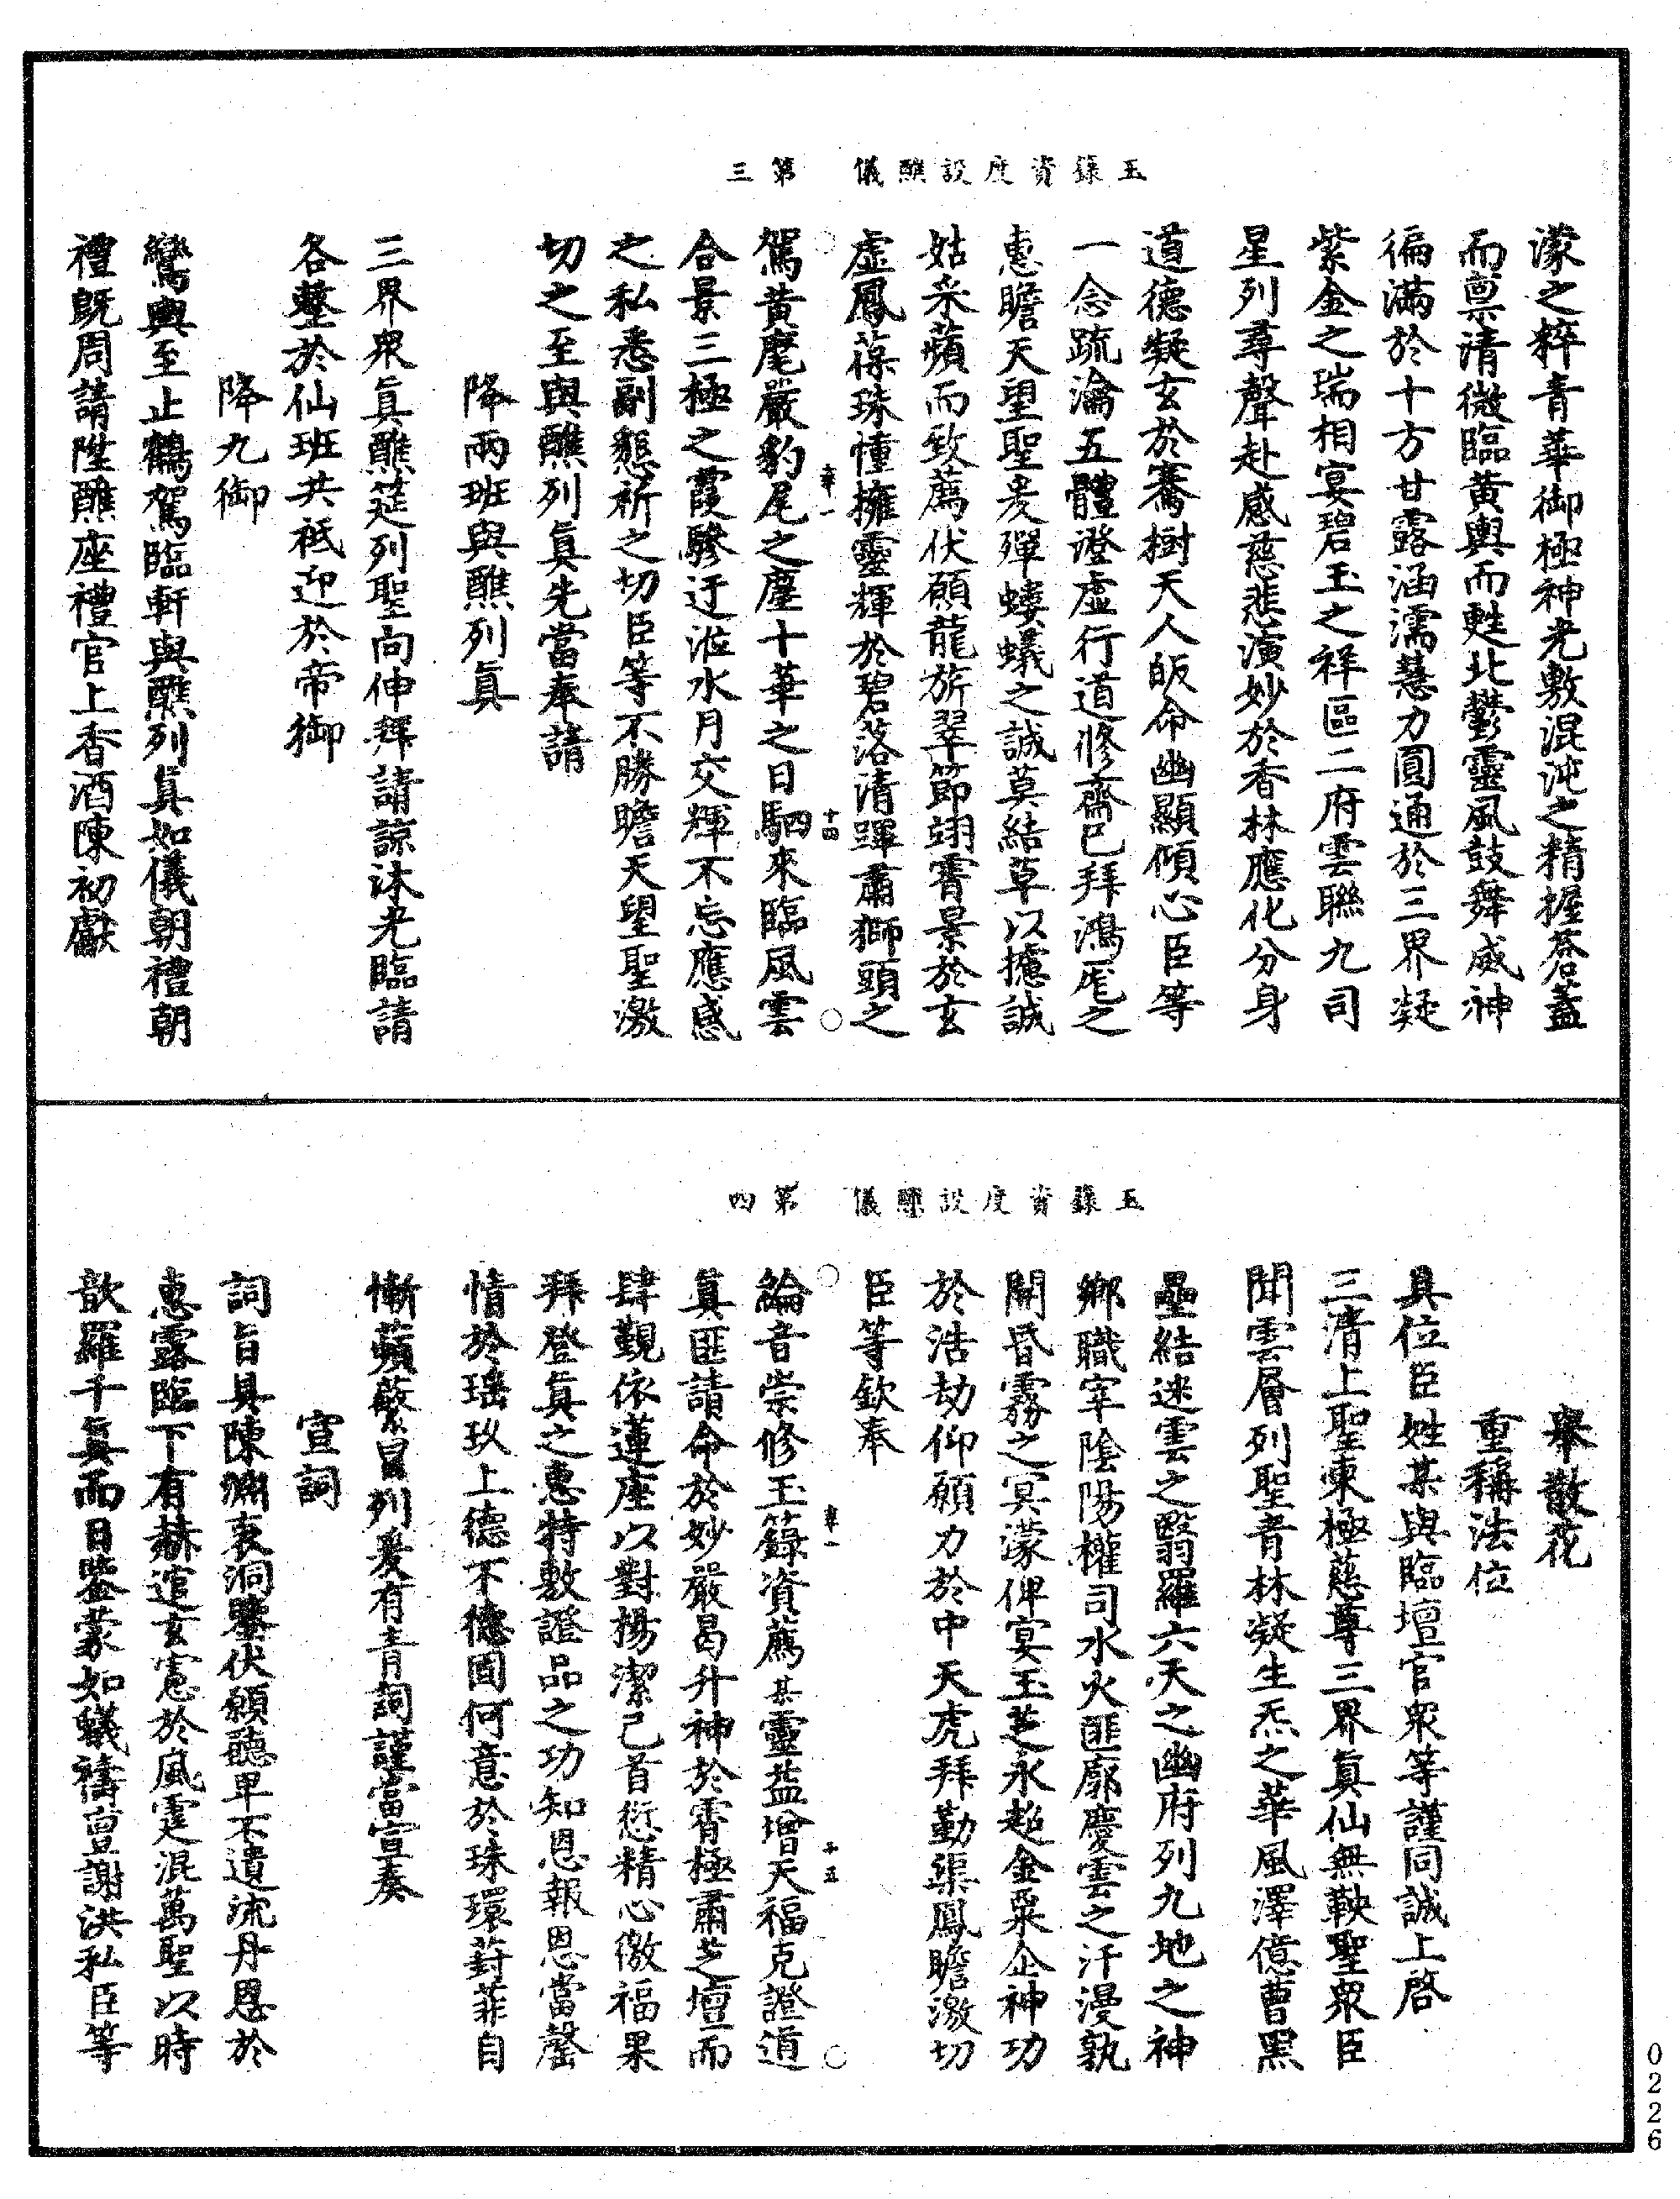 玉籙資度設醮儀 第三
濛之粹青華御極神光敷混沌之精握蒼蓋
而禀清微臨黃輿而甦北鬱靈風鼓舞威神
徧滿於十方甘露涵濡慧力圓通於三界凝
紫金之瑞相宴碧玉之祥區二府雲聯九司
星列尋聲赴感慈悲演妙於香林應化分身
道德凝玄於騫樹天人皈命幽顯傾心臣等
一念疏瀹五體澄虛行道修齋已拜鴻厖之
惠瞻天望聖爰殫螻蟻之誠莫結草以攄誠
姑釆蘋而致薦伏願龍旂翠節翊霄景於玄
虛鳳葆珠幢擁靈輝於碧落清蹕肅獅頭之
章一
十四
駕黃麾嚴豹尾之塵十華之日駟來臨風雲
合景三極之霞驂迂涖水月交輝不忘應感
之私悉副懇祈之切臣等不勝瞻天望聖激
切之至與醮列眞先當奉請
降兩班與醮列眞
三界衆眞醮筵列聖向伸拜請諒沐光臨請
各整於仙班共祗迎於帝御
降九御
鸞輿至止鶴駕臨軒與醮列眞如儀朝禮朝
禮旣周請陞醮座禮官上香酒陳初獻
玉籙資度設醮儀 第四
舉散花
重稱法位
具位臣姓某與臨壇官衆等謹同誠上啓
三清上聖東極慈尊三界眞仙無鞅聖衆臣
聞雲層列聖青林凝生炁之華風澤億曹黑
壘結迷雲之翳羅六天之幽府列九地之神
鄉職宰陰陽權司水火匪廓慶雲之汗漫孰
開昏霧之冥濛俾宴玉芝永超金粟企神功
於浩劫仰願力於中天虎拜勤渠鳳瞻激切
臣等欽奉
綸音崇修玉籙資薦某靈益增天福克證道
章一
十五
眞匪請命於妙嚴曷升神於霄極肅芝壇而
肆觀依蓮座以對揚潔己首愆精心徼福果
拜登眞之惠特敷證品之功知恩報恩當罄
情於瑤玖上德不德固何意於珠環葑菲自
慚蘋蘩曷列爰有青詞謹當宣奏
宣詞
詞旨具陳淵衷洞鑒伏願聽卑不遺流丹恩於
惠露臨下有赫逭玄憲於風霆混萬聖以時
歆羅千眞而日鑒蒙如蟻禱亶謝洪私臣等
0226